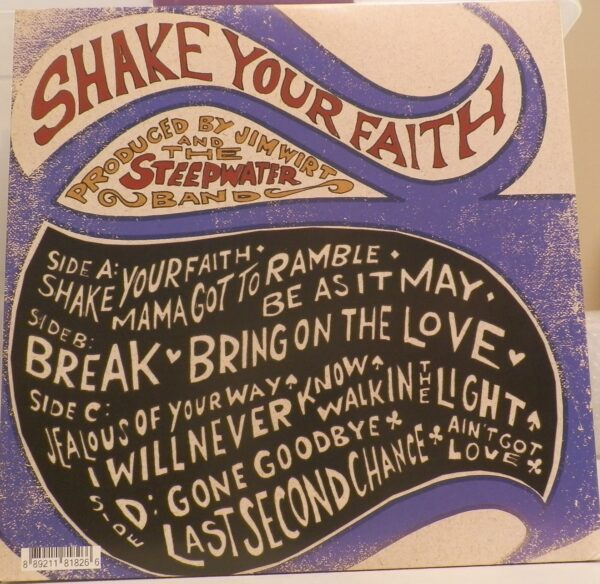 SHAKE YOUR FAITH
PRODUCED BY JIM WIRT
AND THE
STEEPWATER
BAND
SIDE A:
SHAKE YOUR FAITH •
MAMA GOT TO RAMBLE •
BE AS IT MAY •
SIDE B:
BREAK ♥ BRING ON THE LOVE ♥
SIDE C:
JEALOUS OF YOUR WAY ↑
I WILL NEVER KNOW ↑
WALK IN THE LIGHT ↑
SIDE D: GONE GOODBYE ♣
LAST SECOND CHANCE ♣
AIN'T GOT LOVE ♣
8 89211 81826 6